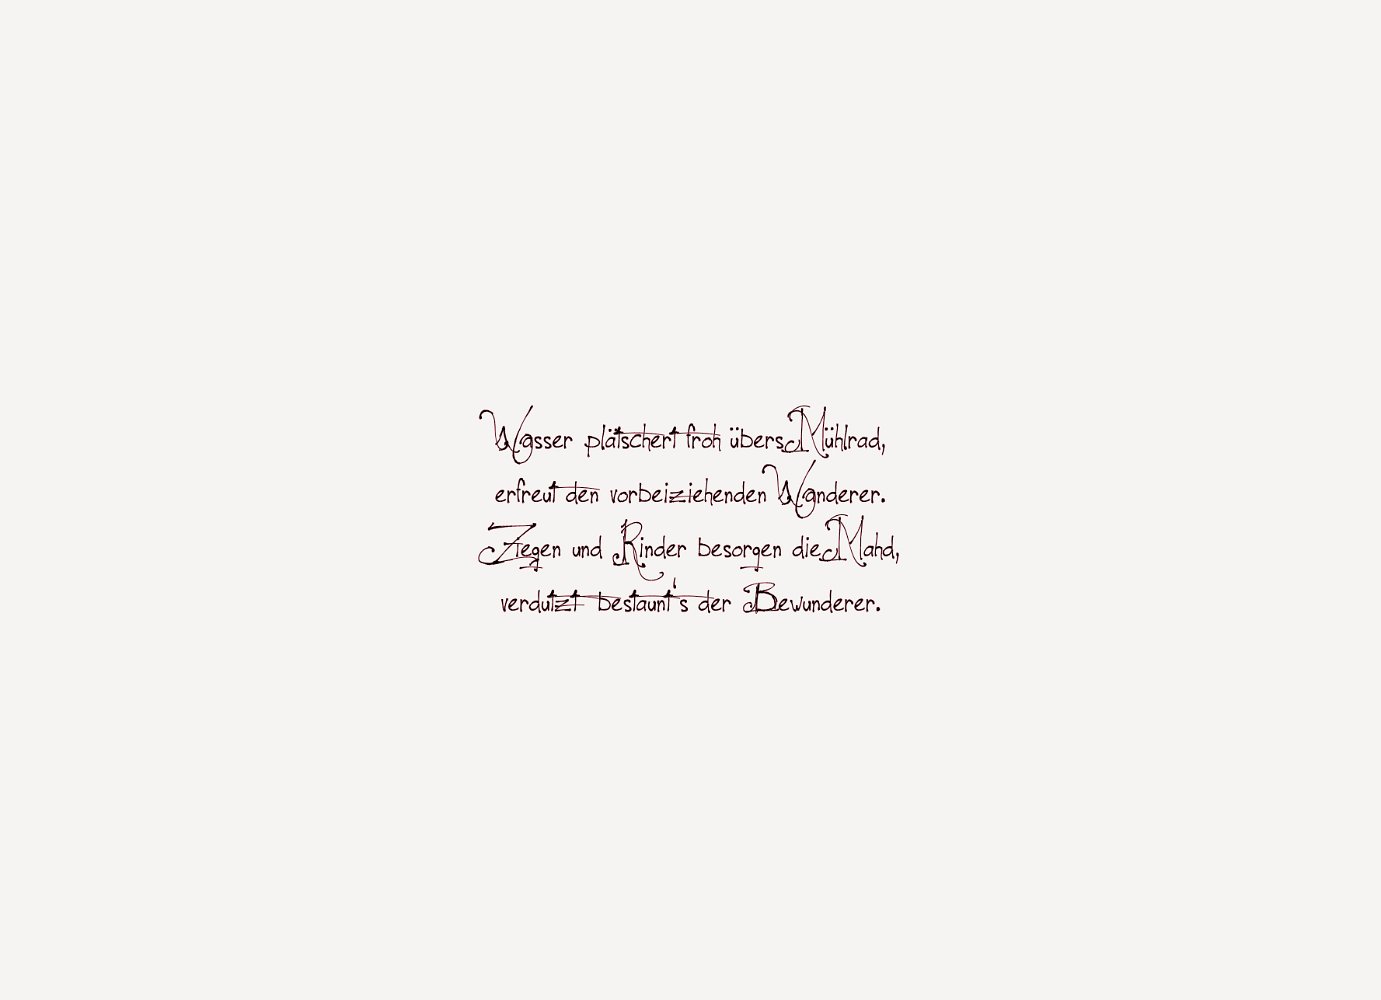 Wasser plätschert froh übers Mühlrad,
erfreut den vorbeiziehenden Wanderer.
Ziegen und Rinder besorgen die Mahd,
verdutzt bestaunt's der Bewunderer.